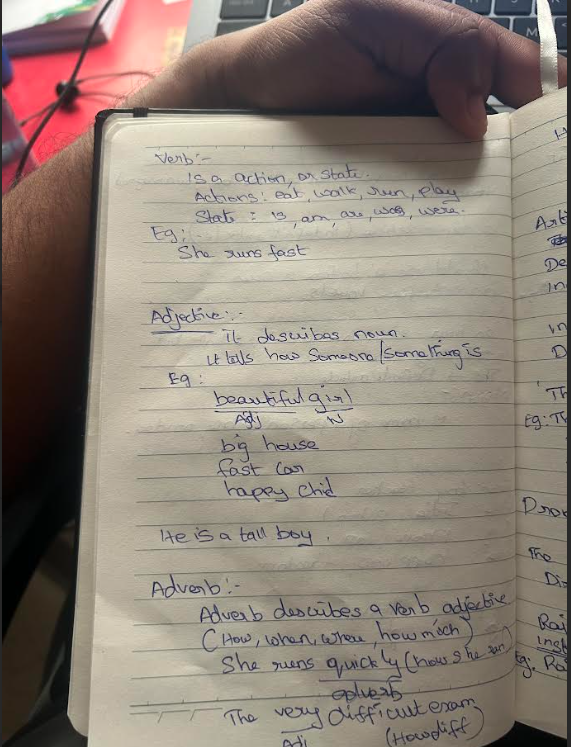 Verb:-
Is a action, or state.
Actions: eat, walk, run, play
State : is, am, are, was, were.
Eg:
She runs fast
Adjective:-
it describes noun.
it tells how Someone/Something is
Eg:
beautiful girl
Adj N
big house
fast car
happy chid
He is a tall boy.
Adverb:-
Adverb describes a verb adjective
(How, when, where, how much)
She runs quickly (how she ran)
adverb
The very difficult exam
Adj (How diff)
Art
De
in
in
D
Th
Eg: Th
Dro
The
Di
Rai
inst
Eg: Ra